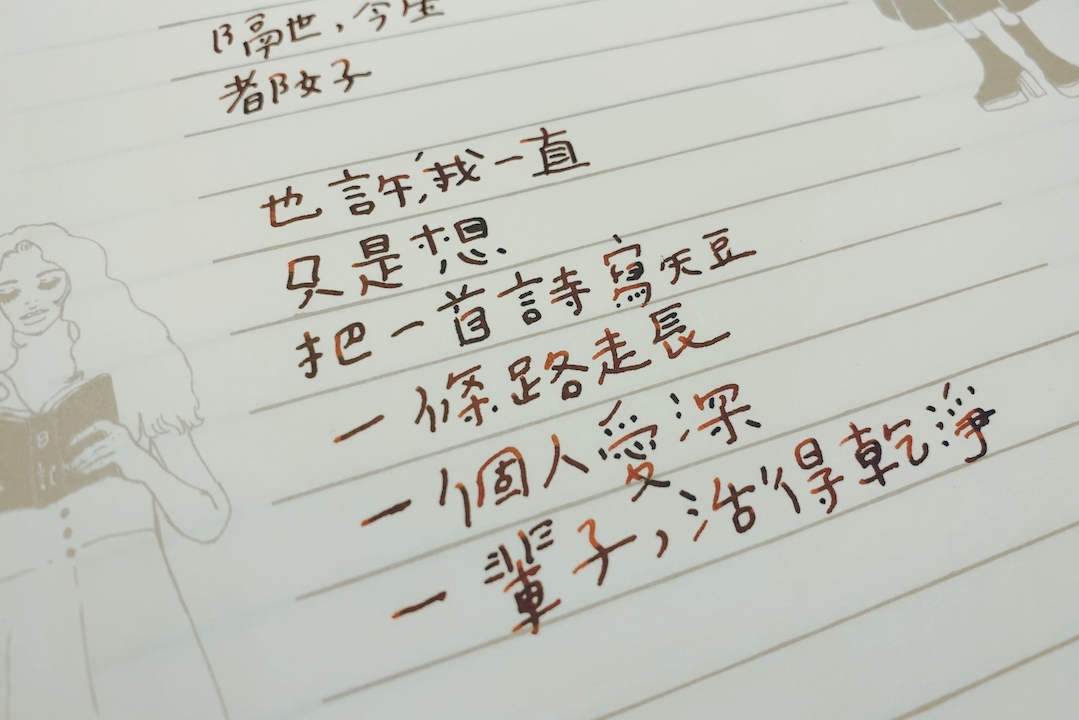 隔世，今生
都好
也許，我一直
只是想
把一首詩寫短
一條路走長
一個人愛深
一輩子，活得乾淨